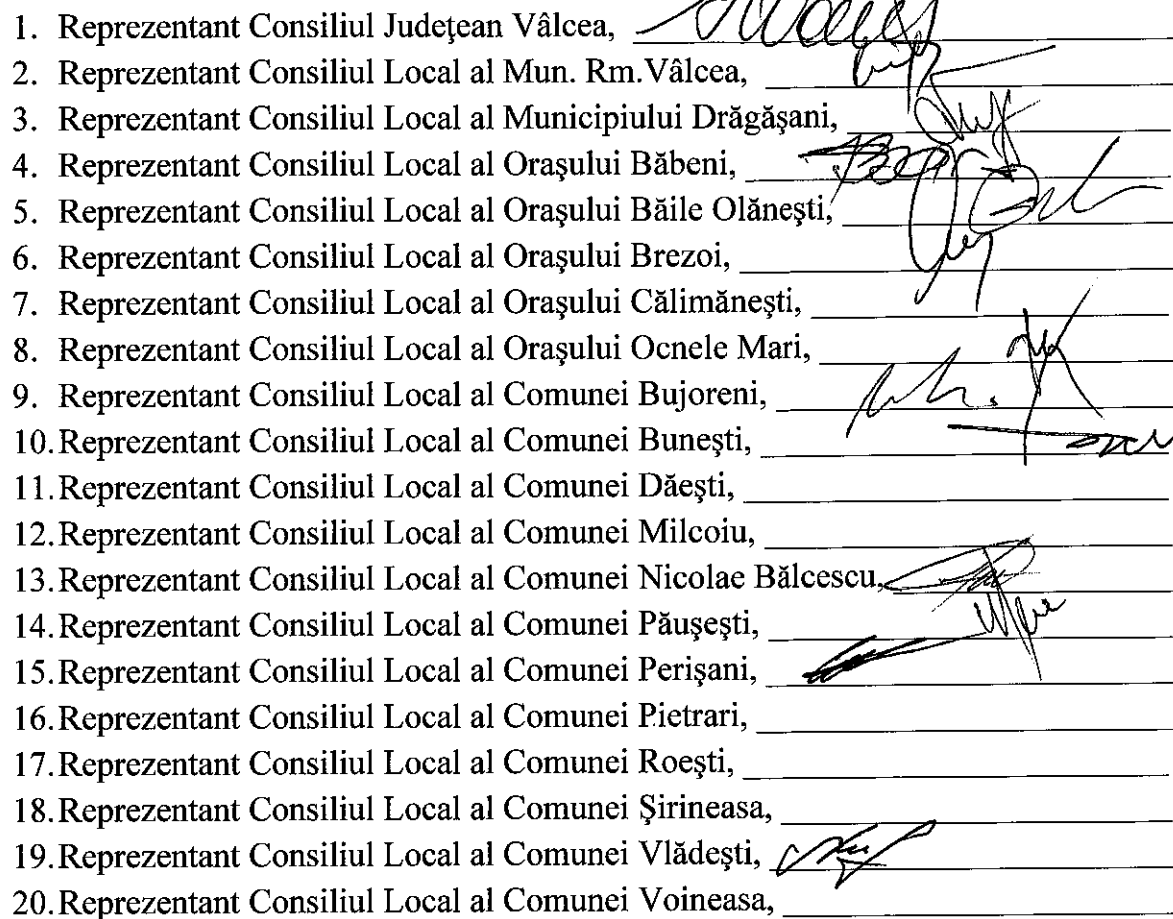 1. Reprezentant Consiliul Judeţean Vâlcea,
2. Reprezentant Consiliul Local al Mun. Rm.Vâlcea,
3. Reprezentant Consiliul Local al Municipiului Drăgăşani,
4. Reprezentant Consiliul Local al Oraşului Băbeni,
5. Reprezentant Consiliul Local al Oraşului Băile Olăneşti,
6. Reprezentant Consiliul Local al Oraşului Brezoi,
7. Reprezentant Consiliul Local al Oraşului Călimăneşti,
8. Reprezentant Consiliul Local al Oraşului Ocnele Mari,
9. Reprezentant Consiliul Local al Comunei Bujoreni,
10.Reprezentant Consiliul Local al Comunei Buneşti,
11.Reprezentant Consiliul Local al Comunei Dăeşti,
12.Reprezentant Consiliul Local al Comunei Milcoiu,
13.Reprezentant Consiliul Local al Comunei Nicolae Bălcescu,
14.Reprezentant Consiliul Local al Comunei Păuşeşti,
15.Reprezentant Consiliul Local al Comunei Perişani,
16.Reprezentant Consiliul Local al Comunei Pietrari,
17.Reprezentant Consiliul Local al Comunei Roeşti,
18.Reprezentant Consiliul Local al Comunei Şirineasa,
19.Reprezentant Consiliul Local al Comunei Vlădeşti,
20.Reprezentant Consiliul Local al Comunei Voineasa,